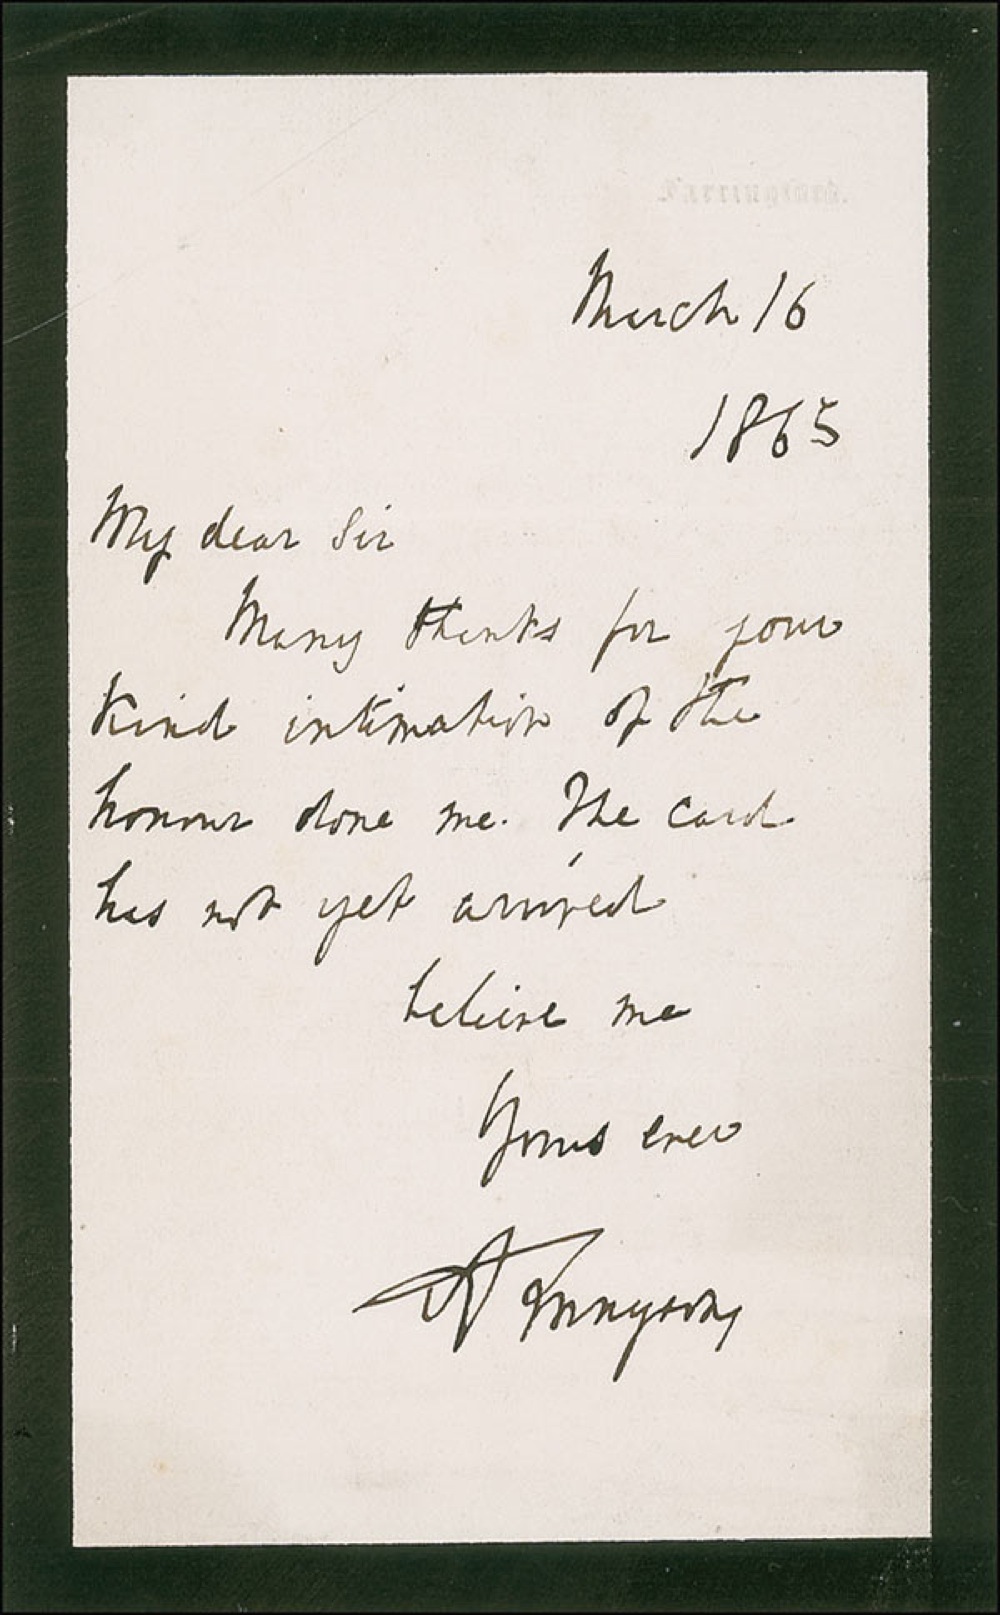 Farringford.
March 16
1865
My dear Sir
Many thanks for your
kind intimation of the
honour done me. The card
has not yet arrived
believe me
Yours ever
A Tennyson